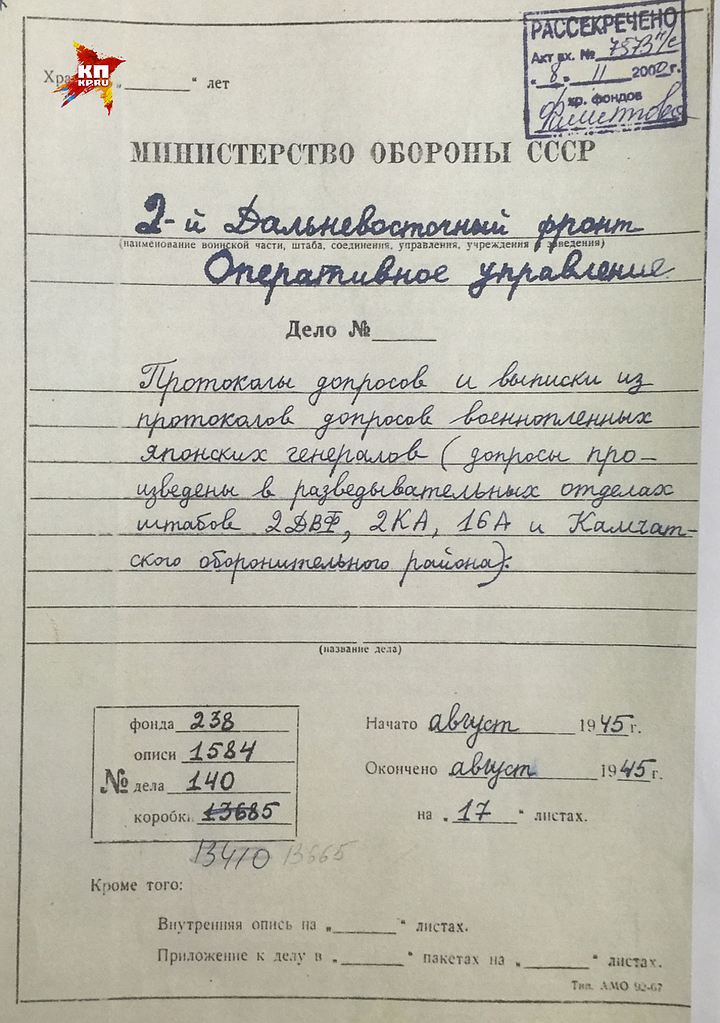 РАССЕКРЕЧЕНО
Акт вх. № 7573
„8„ 11 2000 г.
хр. фондов
КП
KP.RU
„______“ лет
МИНИСТЕРСТВО ОБОРОНЫ СССР
2-й Дальневосточный фронт
(наименование воинской части, штаба, соединения, управления, учреждения заведения)
Оперативное управление
Дело №_____
Протоколы допросов и выписки из
протоколов допросов военнопленных
японских генералов (допросы про-
изведены в разведывательных отделах
штабов 2ДВФ, 2КА, 16А и Камчат-
ского оборонительного района).
(название дела)
№
фонда 238
описи 1584
дела 140
коробки 13685
13410 13665
Начато август 1945 г.
Окончено август 1945 г.
на „17“ листах.
Кроме того:
Внутренняя опись на „______“ листах.
Приложение к делу в „______“ пакетах на „______“ листах.
Тип. АМО 92-67